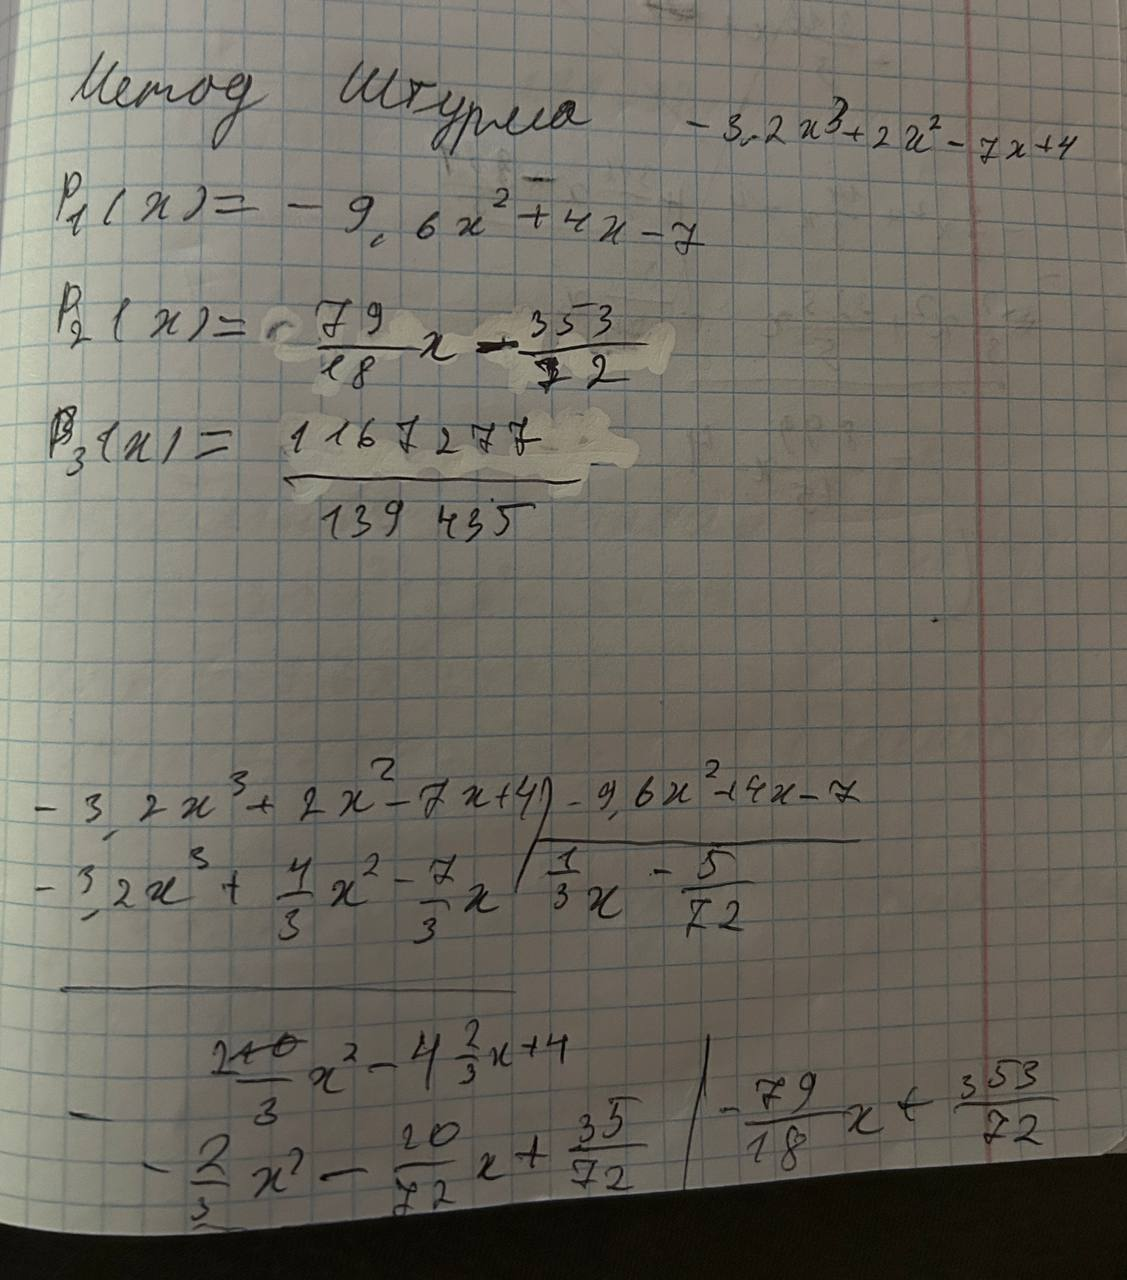 Метод Штурма - 3,2x³+2x²-7x+4
P₁(x)= - 9,6x²+4x-7
P₂(x)= 79/18 x - 353/72
P₃(x)= 1167277/139435
- 3,2x³+2x²-7x+4) -9,6x²+4x-7
- 3,2x³+ 4/3 x² - 7/3 x 1/3 x - 5/72
2/3 x² - 4 2/3 x+4
- 2/3 x² - 20/72 x + 35/72 | - 79/18 x + 353/72